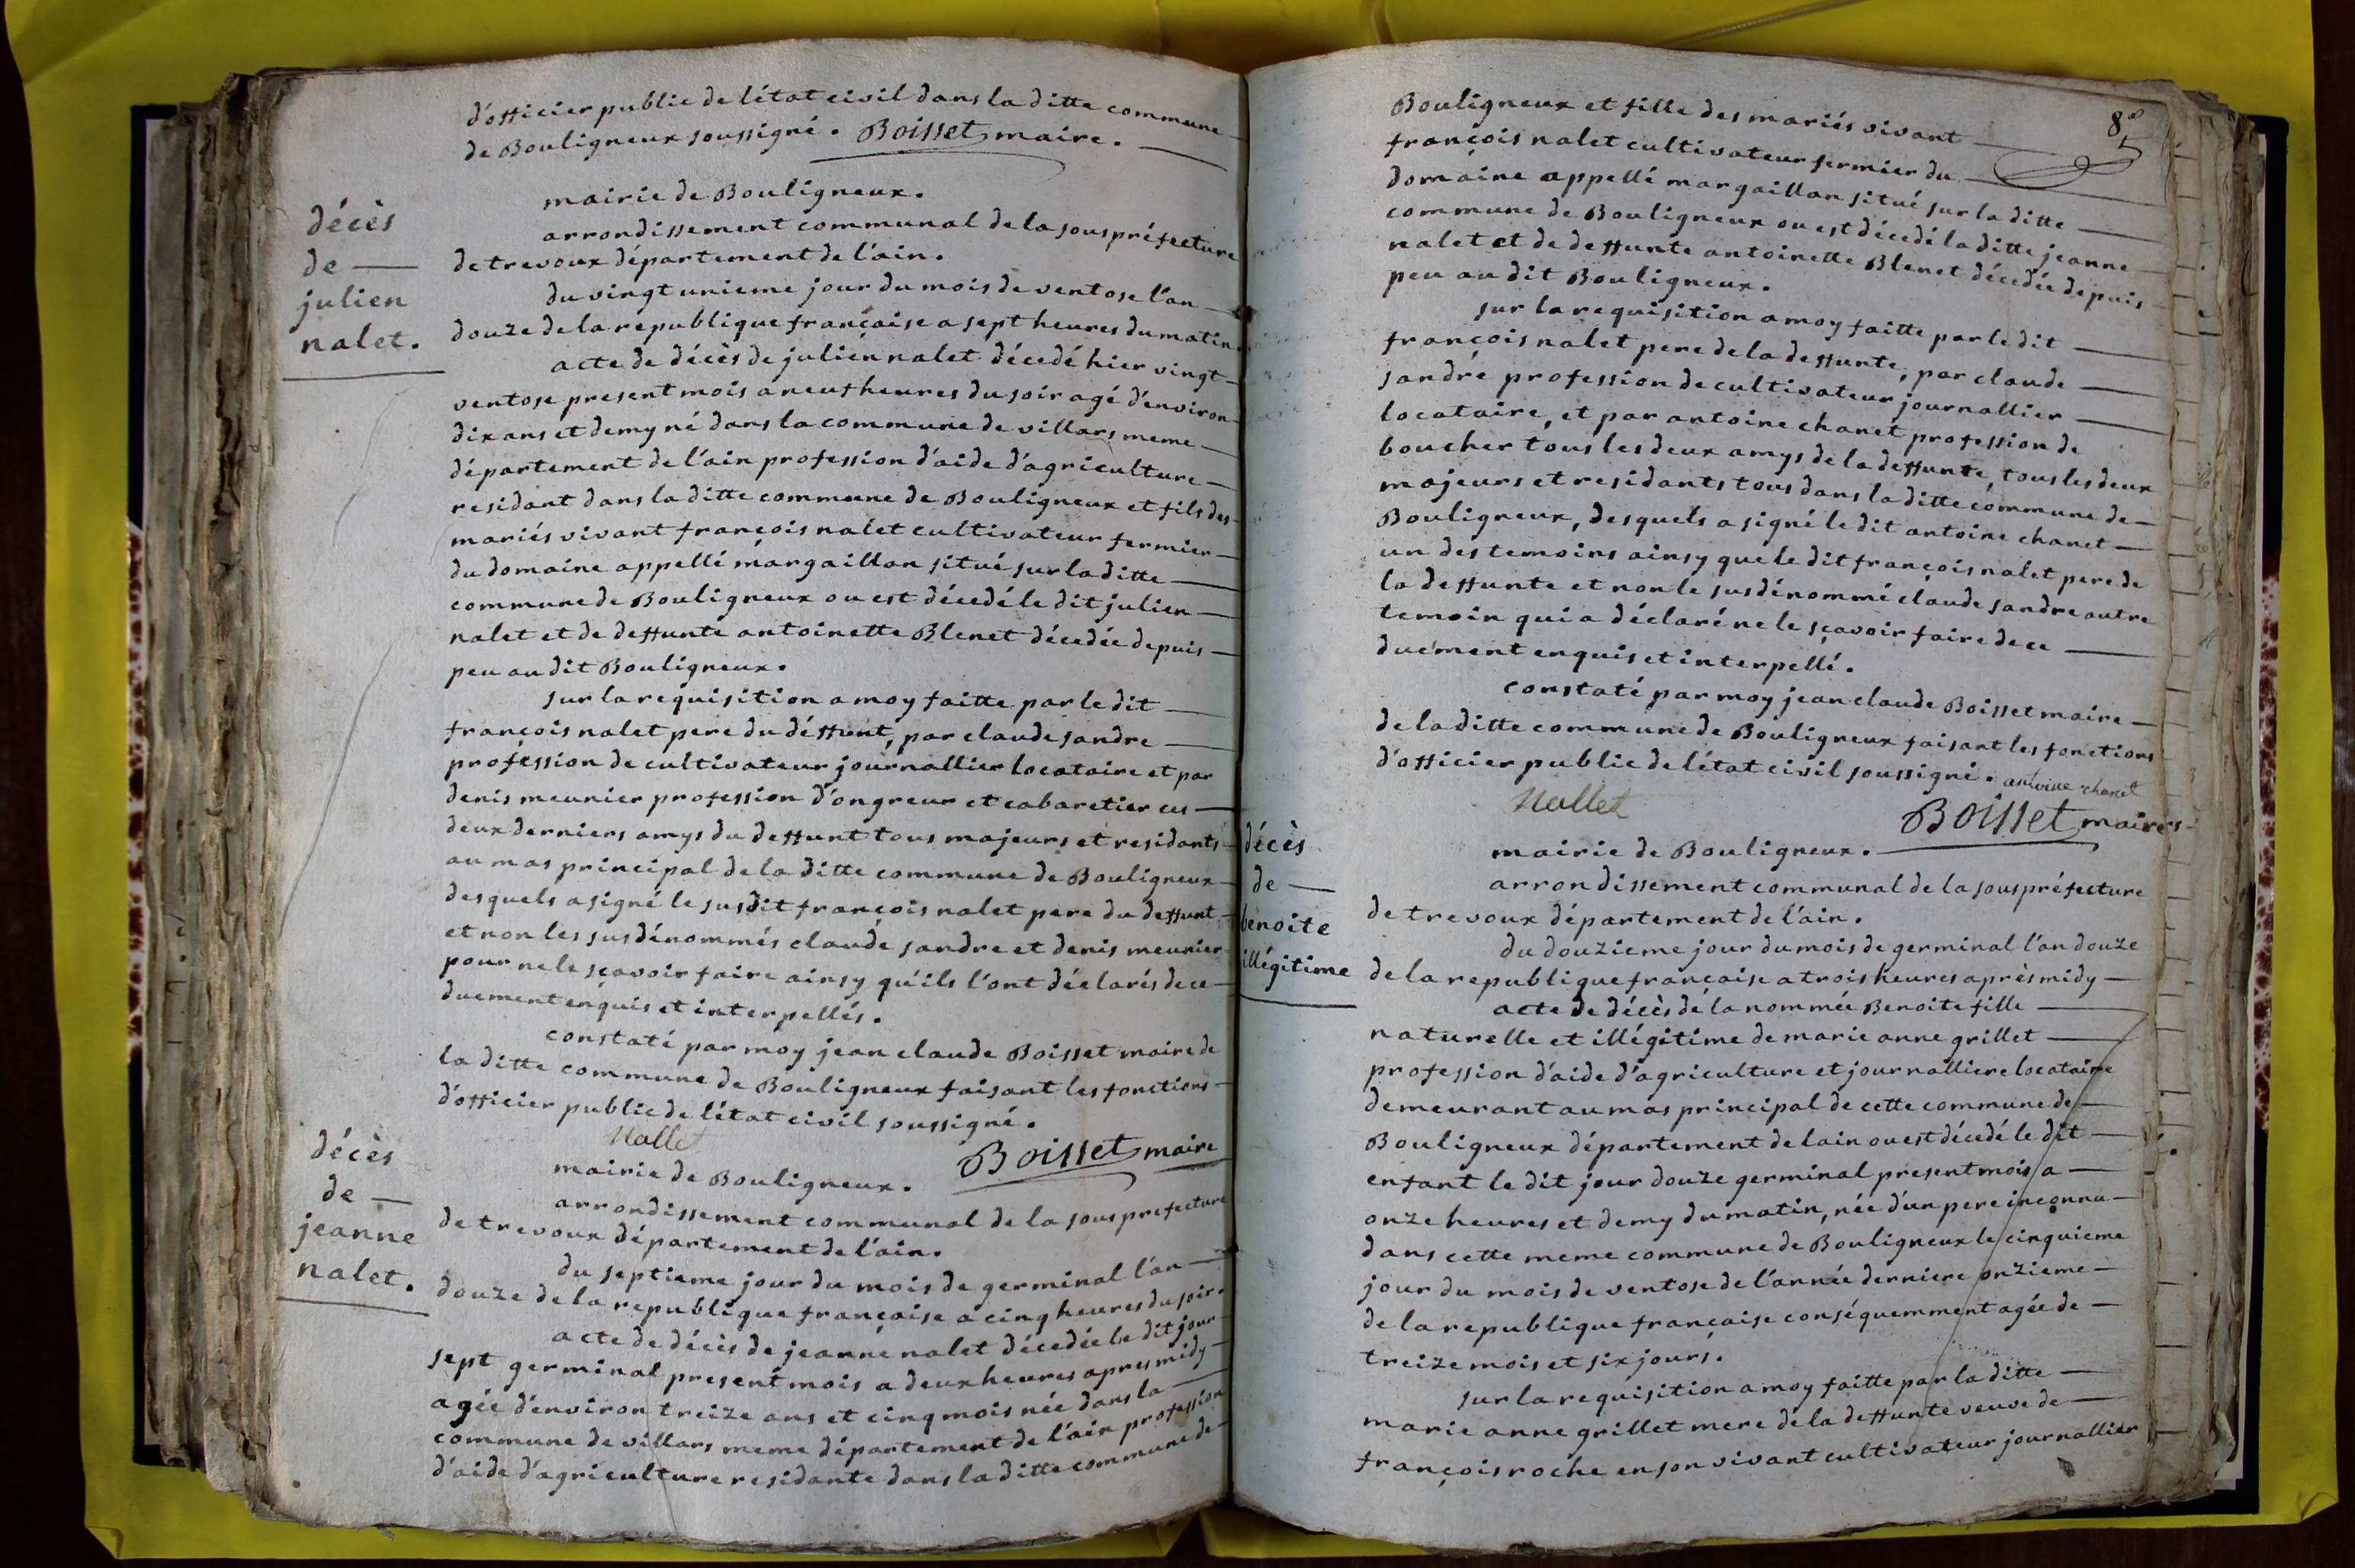 d'officier public de l'état civil dans la ditte commune
de Bouligneux soussigné. Boisset maire.
décès
de
julien
nalet.
mairie de Bouligneux.
arrondissement communal de la sous préfecture
de trevoux département de l'ain.
du vingt unieme jour du mois de ventose l'an
douze de la republique française a sept heures du matin
acte de décès de julien nalet décedé hier vingt
ventose present mois a neuf heures du soir agé d'environ
dix ans et demy né dans la commune de villars meme
département de l'ain profession d'aide d'agriculture
residant dans la ditte commune de Bouligneux et fils des
mariés vivant françois nalet cultivateur fermier
du domaine appellé margaillan situé sur la ditte
commune de Bouligneux ou est décedé le dit julien
nalet et de deffunte antoinette Blenet décedée depuis
peu au dit Bouligneux.
sur la requisition a moy faitte par le dit
françois nalet pere du déffunt, par claude sandre
profession de cultivateur journallier locataire et par
denis meunier profession d'ongreur et cabaretier ces
deux derniers amys du deffunt tous majeurs et residants
au mas principal de la ditte commune de Bouligneux
desquels a signé le susdit françois nalet pere du deffunt
et non les susdénommés claude sandre et denis meunier
pour ne le sçavoir faire ainsy qu'ils l'ont déclarés de ce
duement enquis et interpellés.
constaté par moy jean claude Boisset maire de
la ditte commune de Bouligneux faisant les fonctions
d'officier public de l'état civil soussigné.
Nallet
Boisset maire
décès
de
jeanne
nalet.
mairie de Bouligneux.
arrondissement communal de la sous prefecture
de trevoux département de l'ain.
du septieme jour du mois de germinal l'an
douze de la republique française a cinq heures du soir.
acte de décès de jeanne nalet décedée le dit jour
sept germinal present mois a deux heures apres midy
agée d'environ treize ans et cinq mois née dans la
commune de villars meme département de l'ain profession
d'aide d'agriculture residante dans la ditte commune de
8
5
Bouligneux et fille des mariés vivant
françois nalet cultivateur fermier du
domaine appellé margaillan situé sur la ditte
commune de Bouligneux ou est décedé la ditte jeanne
nalet et de deffunte antoinette Blenet décedée depuis
peu au dit Bouligneux.
sur la requisition a moy faitte par le dit
françois nalet pere de la deffunte, par claude
sandre profession de cultivateur journallier
locataire, et par antoine chanet profession de
boucher tous les deux amys de la deffunte, tous les deux
majeurs et residants tous dans la ditte commune de
Bouligneux, desquels a signé le dit antoine chanet
un des temoins ainsy que le dit françois nalet pere de
la deffunte et non le susdénommé claude sandre autre
temoin qui a déclaré ne le sçavoir faire de ce
duement enquis et interpellé.
constaté par moy jean claude Boisset maire
de la ditte commune de Bouligneux faisant les fonctions
d'officier public de l'état civil soussigné. antoine chanet
Nallet
Boisset maire
décès
de
benoite
illégitime
mairie de Bouligneux.
arrondissement communal de la sous préfecture
de trevoux département de l'ain.
du douzieme jour du mois de germinal l'an douze
de la republique française a trois heures après midy
acte de décès de la nommée Benoite fille
naturelle et illégitime de marie anne grillet
profession d'aide d'agriculture et journalliere locataire
demeurant au mas principal de cette commune de
Bouligneux département de lain ou est décedé le dit
enfant le dit jour douze germinal present mois a
onze heures et demy du matin, née d'un pere inconnu
dans cette meme commune de Bouligneux le cinquieme
jour du mois de ventose de l'année derniere onzieme
de la republique française conséquemment agée de
treize mois et six jours.
sur la requisition a moy faitte par la ditte
marie anne grillet mere de la deffunte veuve de
françois roche en son vivant cultivateur journallier